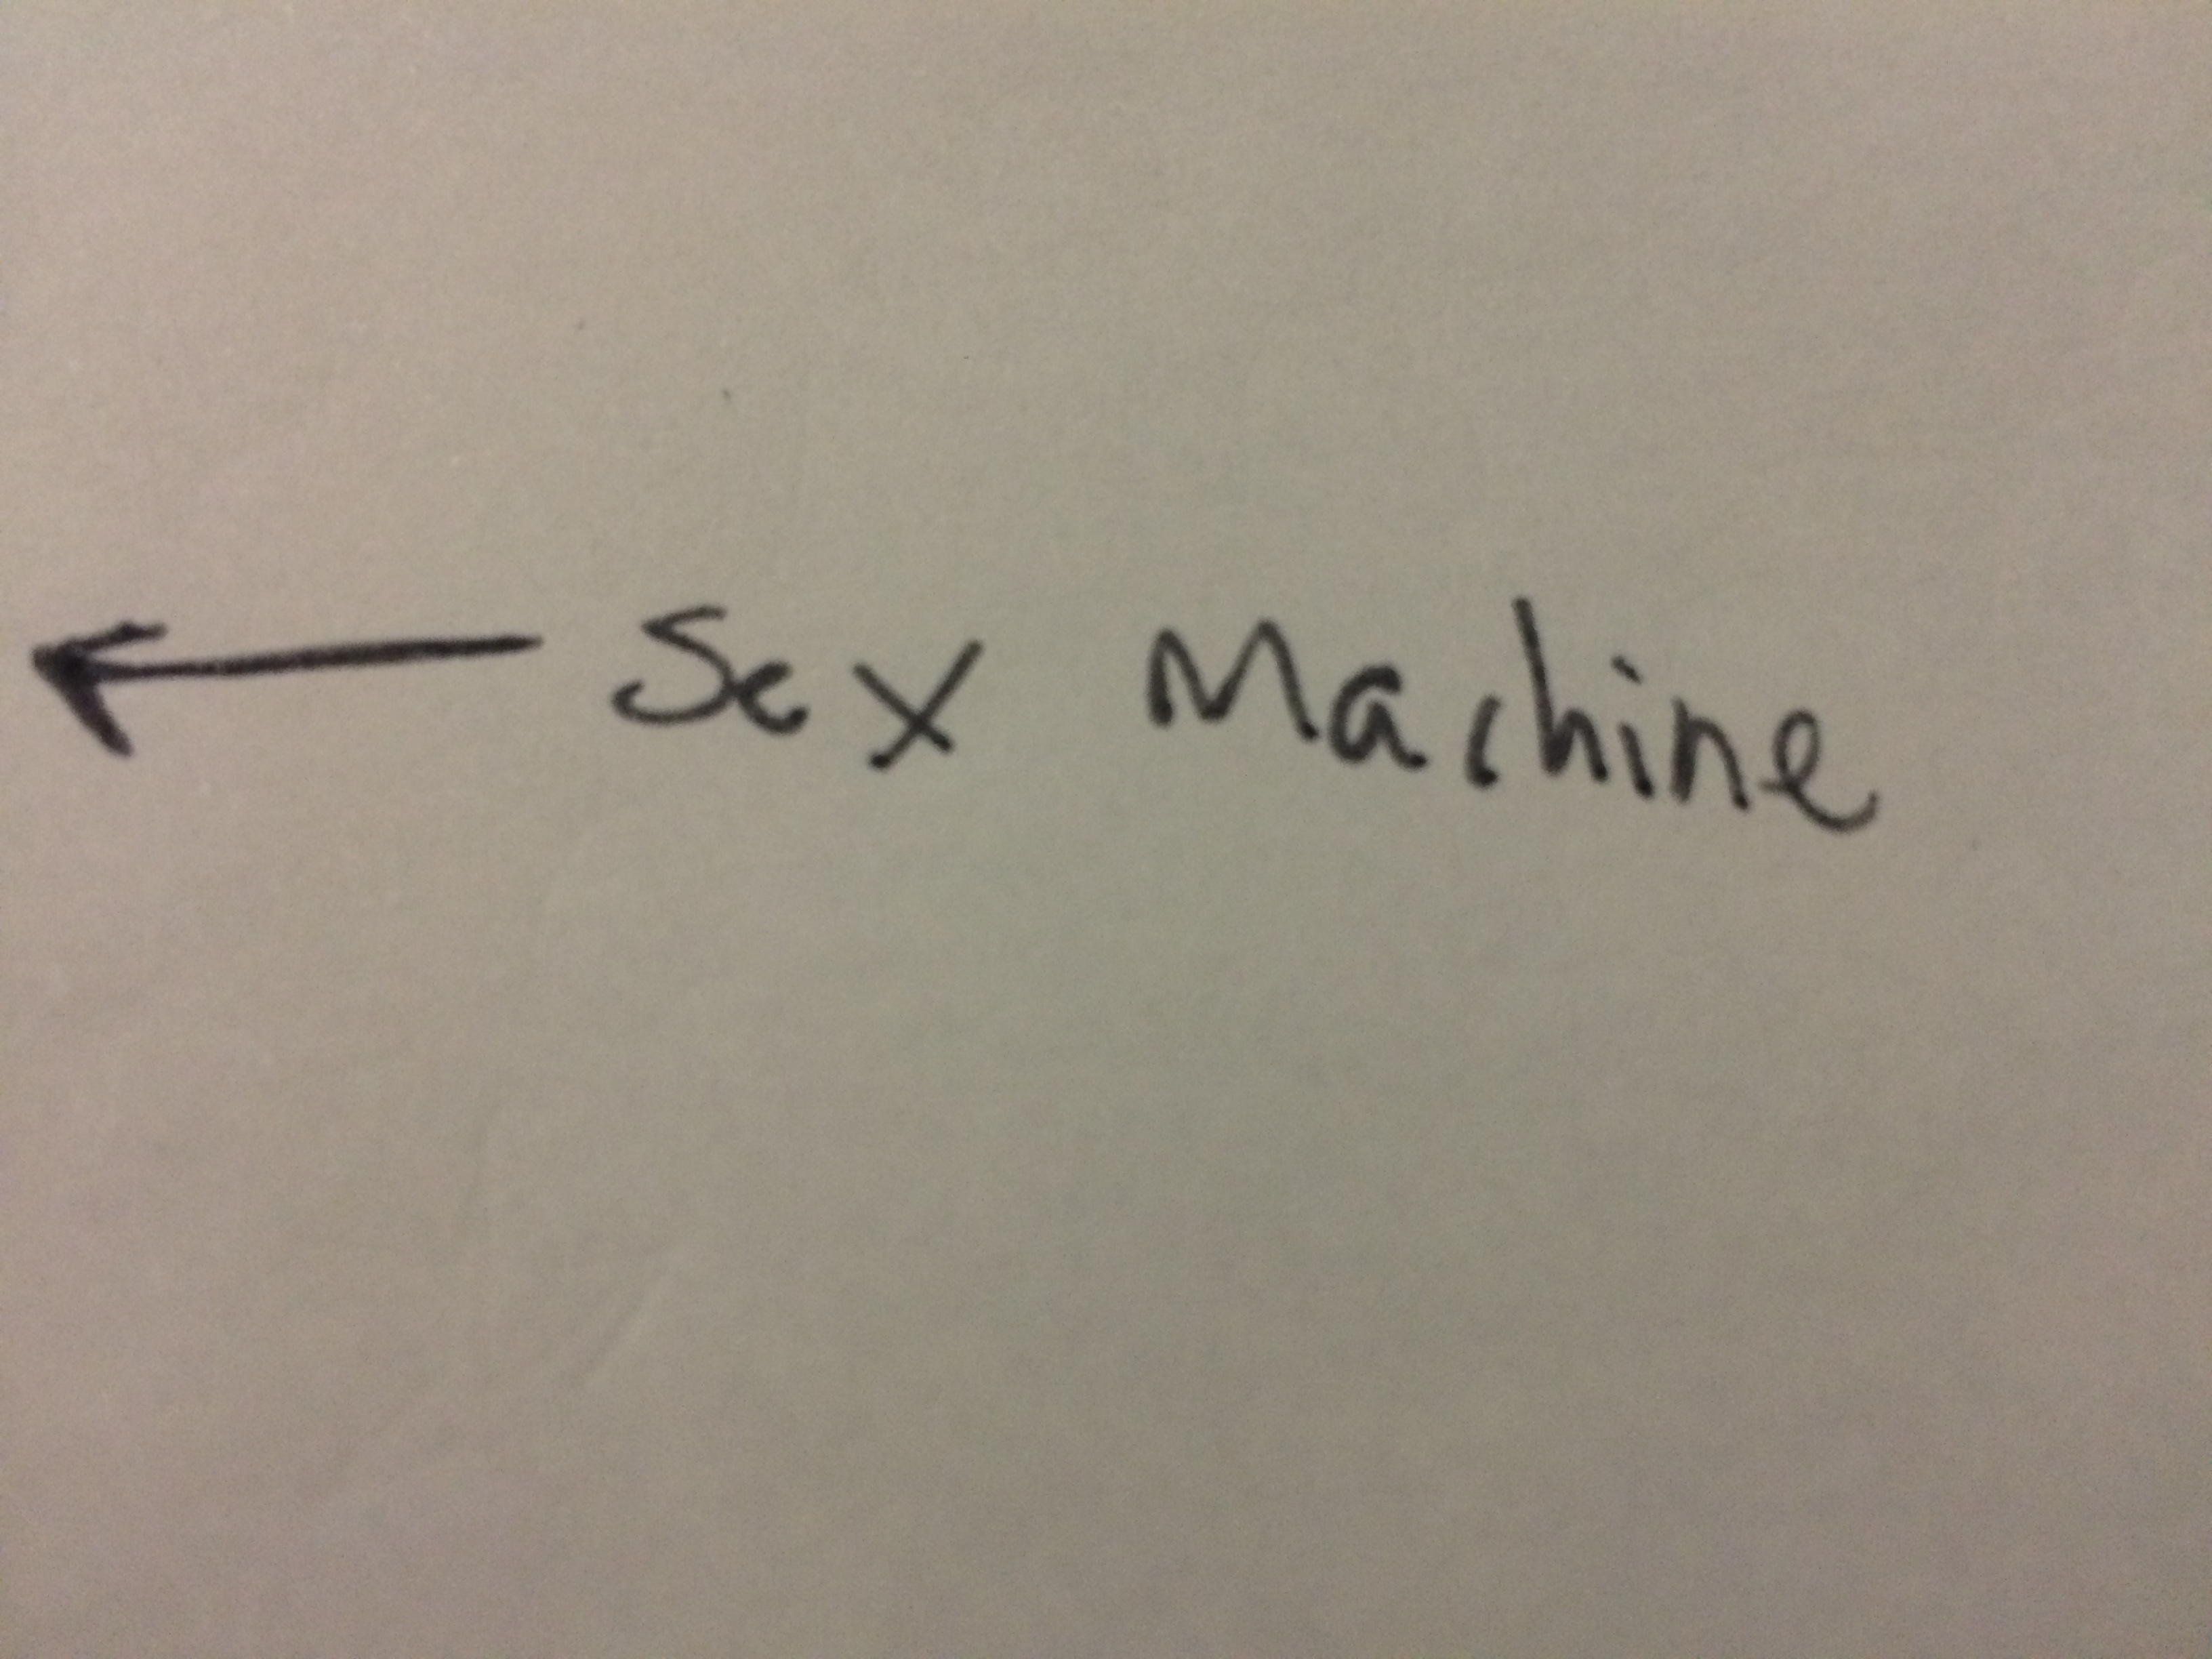 ← Sex Machine